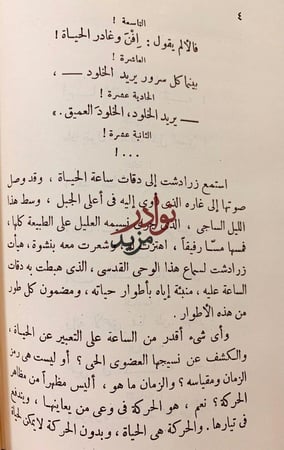 ٤
التاسعة !
فالألم يقول : اِفْنَ وغادر الحياة !
العاشرة !
بينما كل سرور يريد الخلود —— ،
الحادية عشرة !
—— يريد الخلود، الخلود العميق . »
الثانية عشرة !
. . . !
استمع زرادشت إلى دقات ساعة الحياة ، وقد وصل
صوتها إلى غاره الذى أوى إليه فى أعلى الجبل ، وسط هذا
الليل الساجى ، الذى نسيمه العليل على الطبيعة كلها ،
فمسها مسّا رفيقاً ، اهتزت له ، وشعرت معه بنشوة، هيأت
زرادشت لسماع هذا الوحى القدسى ، الذى هبطت به دقات
الساعة عليه ، منبئة إياه بأطوار حياته ، ومضمون كل طور
من هذه الأطوار .
وأى شىء أقدر من الساعة على التعبير عن الحياة ،
والكشف عن نسيجها العضوى الحى ؟ أو ليست هى رمز
الزمان ومقياسه ؟ والزمان ما هو ، أليس مظهراً من مظاهر
الحركة ؟ نعم ، هو الحركة فى وعى من يعاينها ، ويندفع
فى تيارها . والحركة هى الحياة ، وبدون الحركة لا يمكن لحياة
نوادر
مزيد